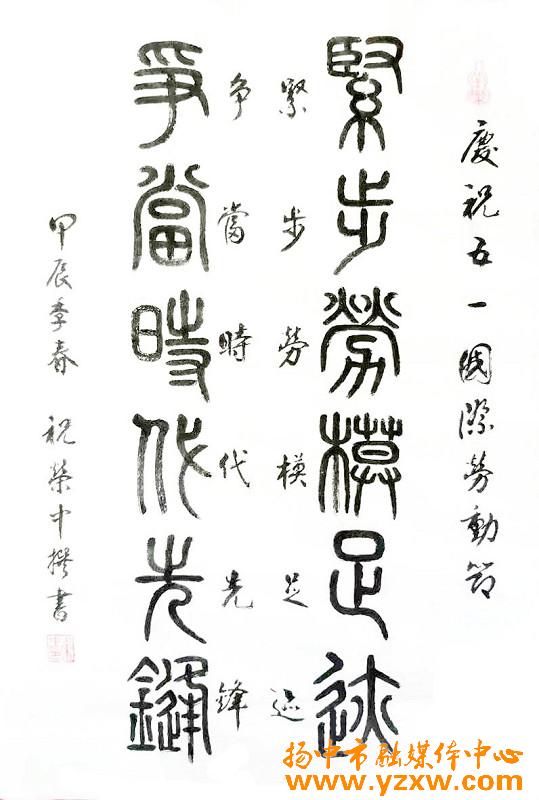 慶祝五一國際勞動節
緊步勞模足跡
緊步劳模足迹
争當時代先锋
爭當時代先鋒
甲辰季春 祝榮中撰書
扬中市融媒体中心
www.yzxw.com